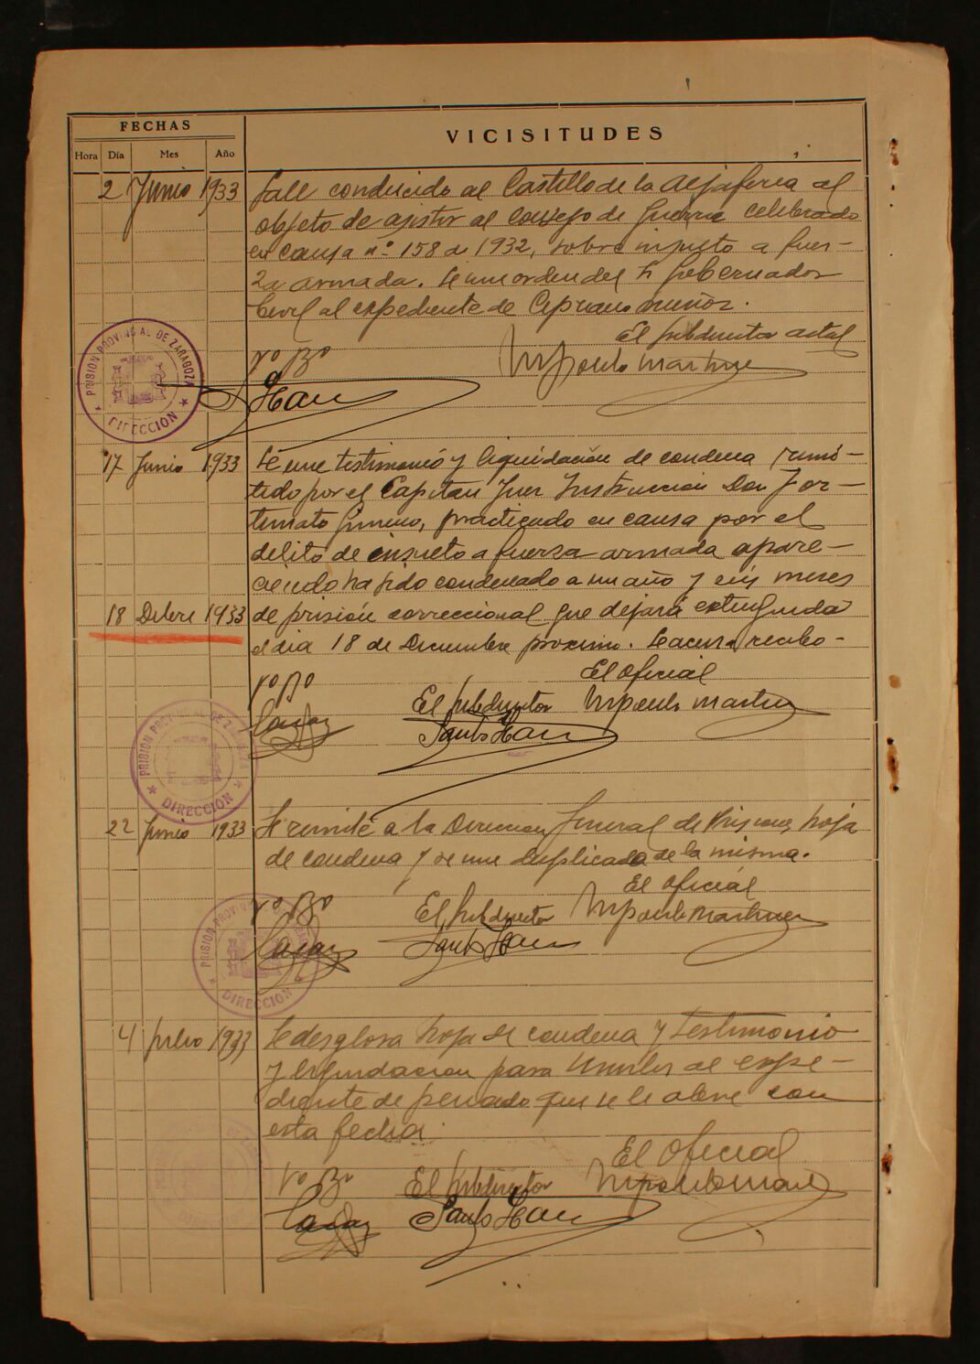 FECHAS
VICISITUDES
Hora Día Mes Año
2 Junio 1933 Sale conducido al Castillo de la Aljaferia al
objeto de asistir al Consejo de Guerra celebrado
en causa nº 158 de 1932, sobre insulto a fuer-
za armada. Se une orden del Sr Gobernador
Civil al expediente de Cipriano Muñoz.
El Subdirector actal
Vº Bº
PRISION PROVINCIAL DE ZARAGOZA
DIRECCION
17 Junio 1933 Se une testimonio y liquidación de condena remi-
tido por el Capitan Juez Instrucción Don For-
tunato Gimeno, practicado en causa por el
delito de insulto a fuerza armada apare-
ciendo ha sido condenado a un año y seis meses
18 Dcbre 1933 de prisión correccional que dejará extinguida
el dia 18 de Diciembre proximo. Se acusa recibo-
El Oficial
Vº Bº
El Subdirector Martinez
PRISION PROVINCIAL DE ZARAGOZA
DIRECCION
22 Junio 1933 Se remite a la Direccion General de Prisiones hoja
de condena y se une duplicada de la misma.
El Oficial
Vº Bº El Subdirector Martinez
PRISION PROVINCIAL DE ZARAGOZA
DIRECCION
4 Julio 1933 Se desglosa hoja de condena y testimonio
y liquidacion para unirlos al expe-
diente de penado que se le abre con
esta fecha.
El Oficial
Vº Bº El Subdirector